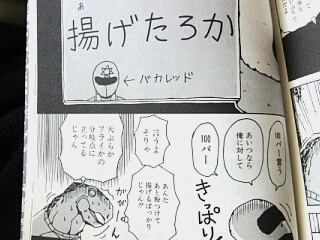 あ
揚げたろか
←バカレッド
100パー言う
あいつなら
俺に対して
100パー
きっぱり
言うよ
そりゃ
あんた
あと粉つけて
揚げるばっかり
じゃん!!
天ぷらか
フライかの
分岐点に
立ってる
じゃん